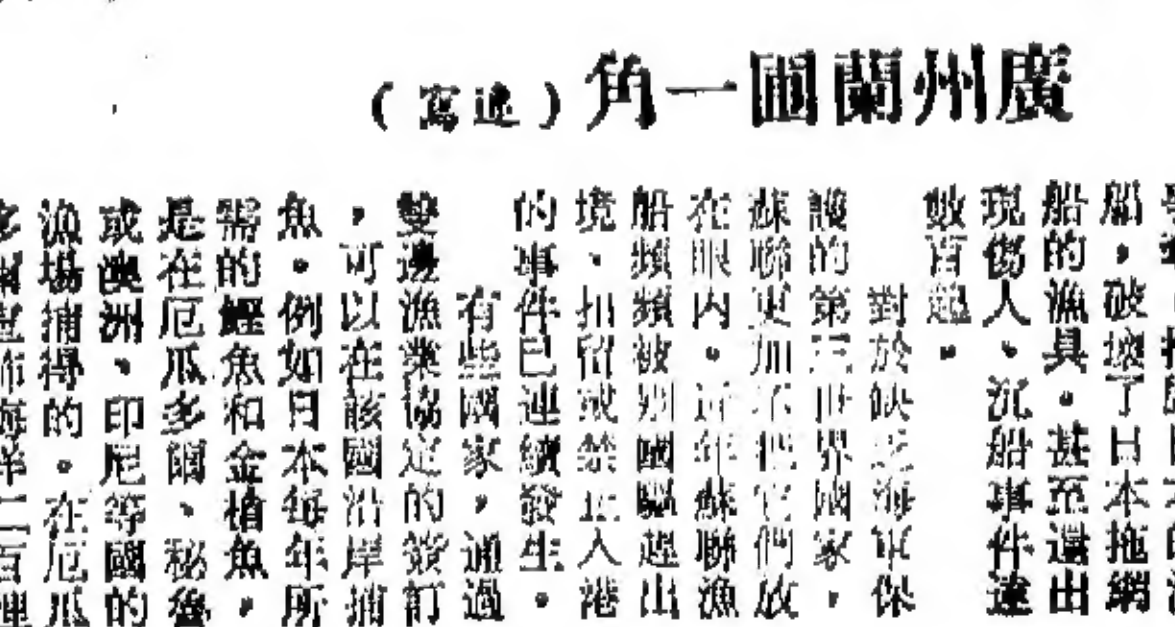 廣州蘭圃一角（速寫）
船，破壞了日本拖網
船的漁具。甚至還出
現傷人、沉船事件達
數百起。
對於缺乏海軍保
護的第三世界國家，
蘇聯更加不把它們放
在眼內。近年蘇聯漁
船頻頻被別國驅趕出
境、扣留或禁止入港
的事件已連續發生。
有些國家，通過
雙邊漁業協定的簽訂
，可以在該國沿岸捕
魚。例如日本每年所
需的鰹魚和金槍魚，
是在厄瓜多爾、秘魯
或澳洲、印尼等國的
漁場捕得的。在厄瓜
多爾宣佈海洋二百浬